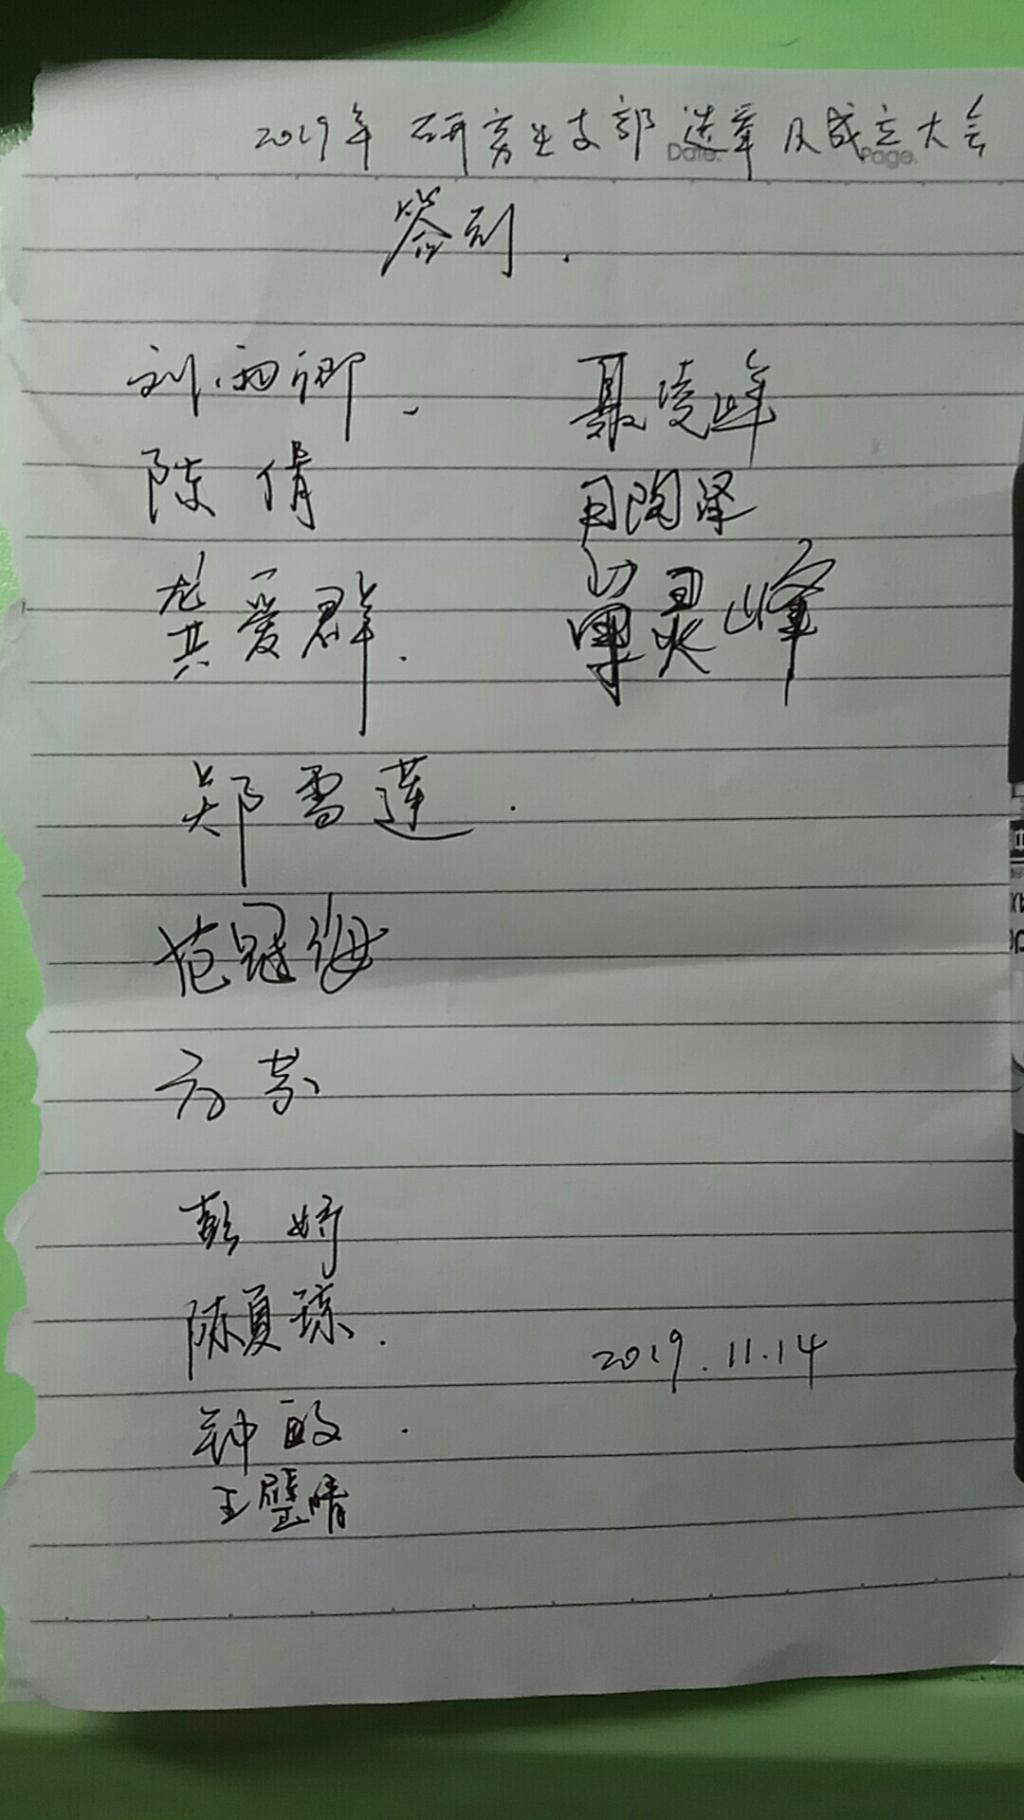 2019年 研究生支部 选举及成立大会
Date.
Page.
签到.
刘雨卿.
陈倩
龚爱群.
郑雪莲.
范冠海
方芬
彭娇
陈夏琼.
钟敏.
王璧晴
聂凌峰
周陶泽
覃灵峰
2019.11.14